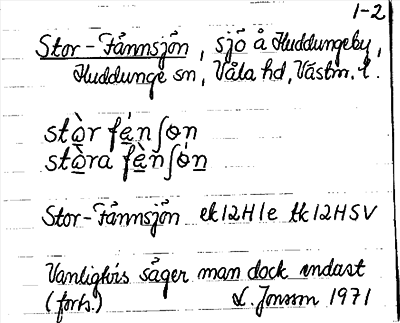 1-2
Stor-Fännsjön, sjö å Huddungeby,
Huddunge sn, Våla hd, Västm. l.
stὰ̱r fέ̱nʃөn
stὰ̱ra fὲ̱nʃө́n̲
Stor-Fännsjön ek 12H1e tk 12HSV
Vanligtvis säger man dock endast
(forts.) L. Jonsson 1971